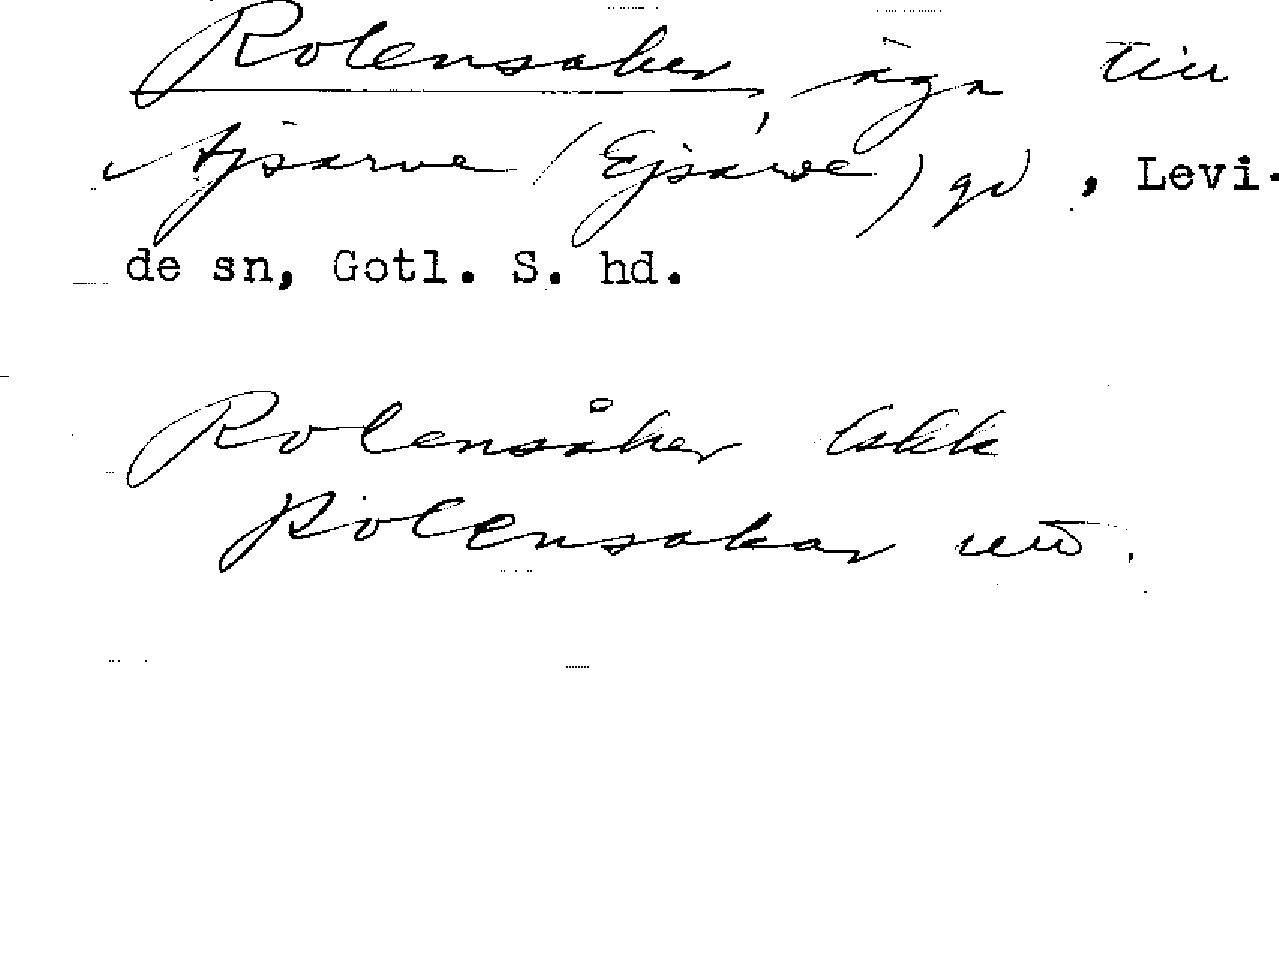 Rolensaker, äga till
Ajsarve (Ejsarve) gd, Levi-
de sn, Gotl. S. hd.
Rolensåker lskk
Rolensakar utt.